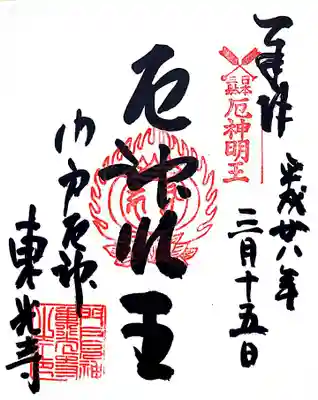 奉拝
平成廿八年
三月十五日
日本三躰
厄神明王
厄神明王
門戸厄神
東光寺
門戸厄神
東光寺